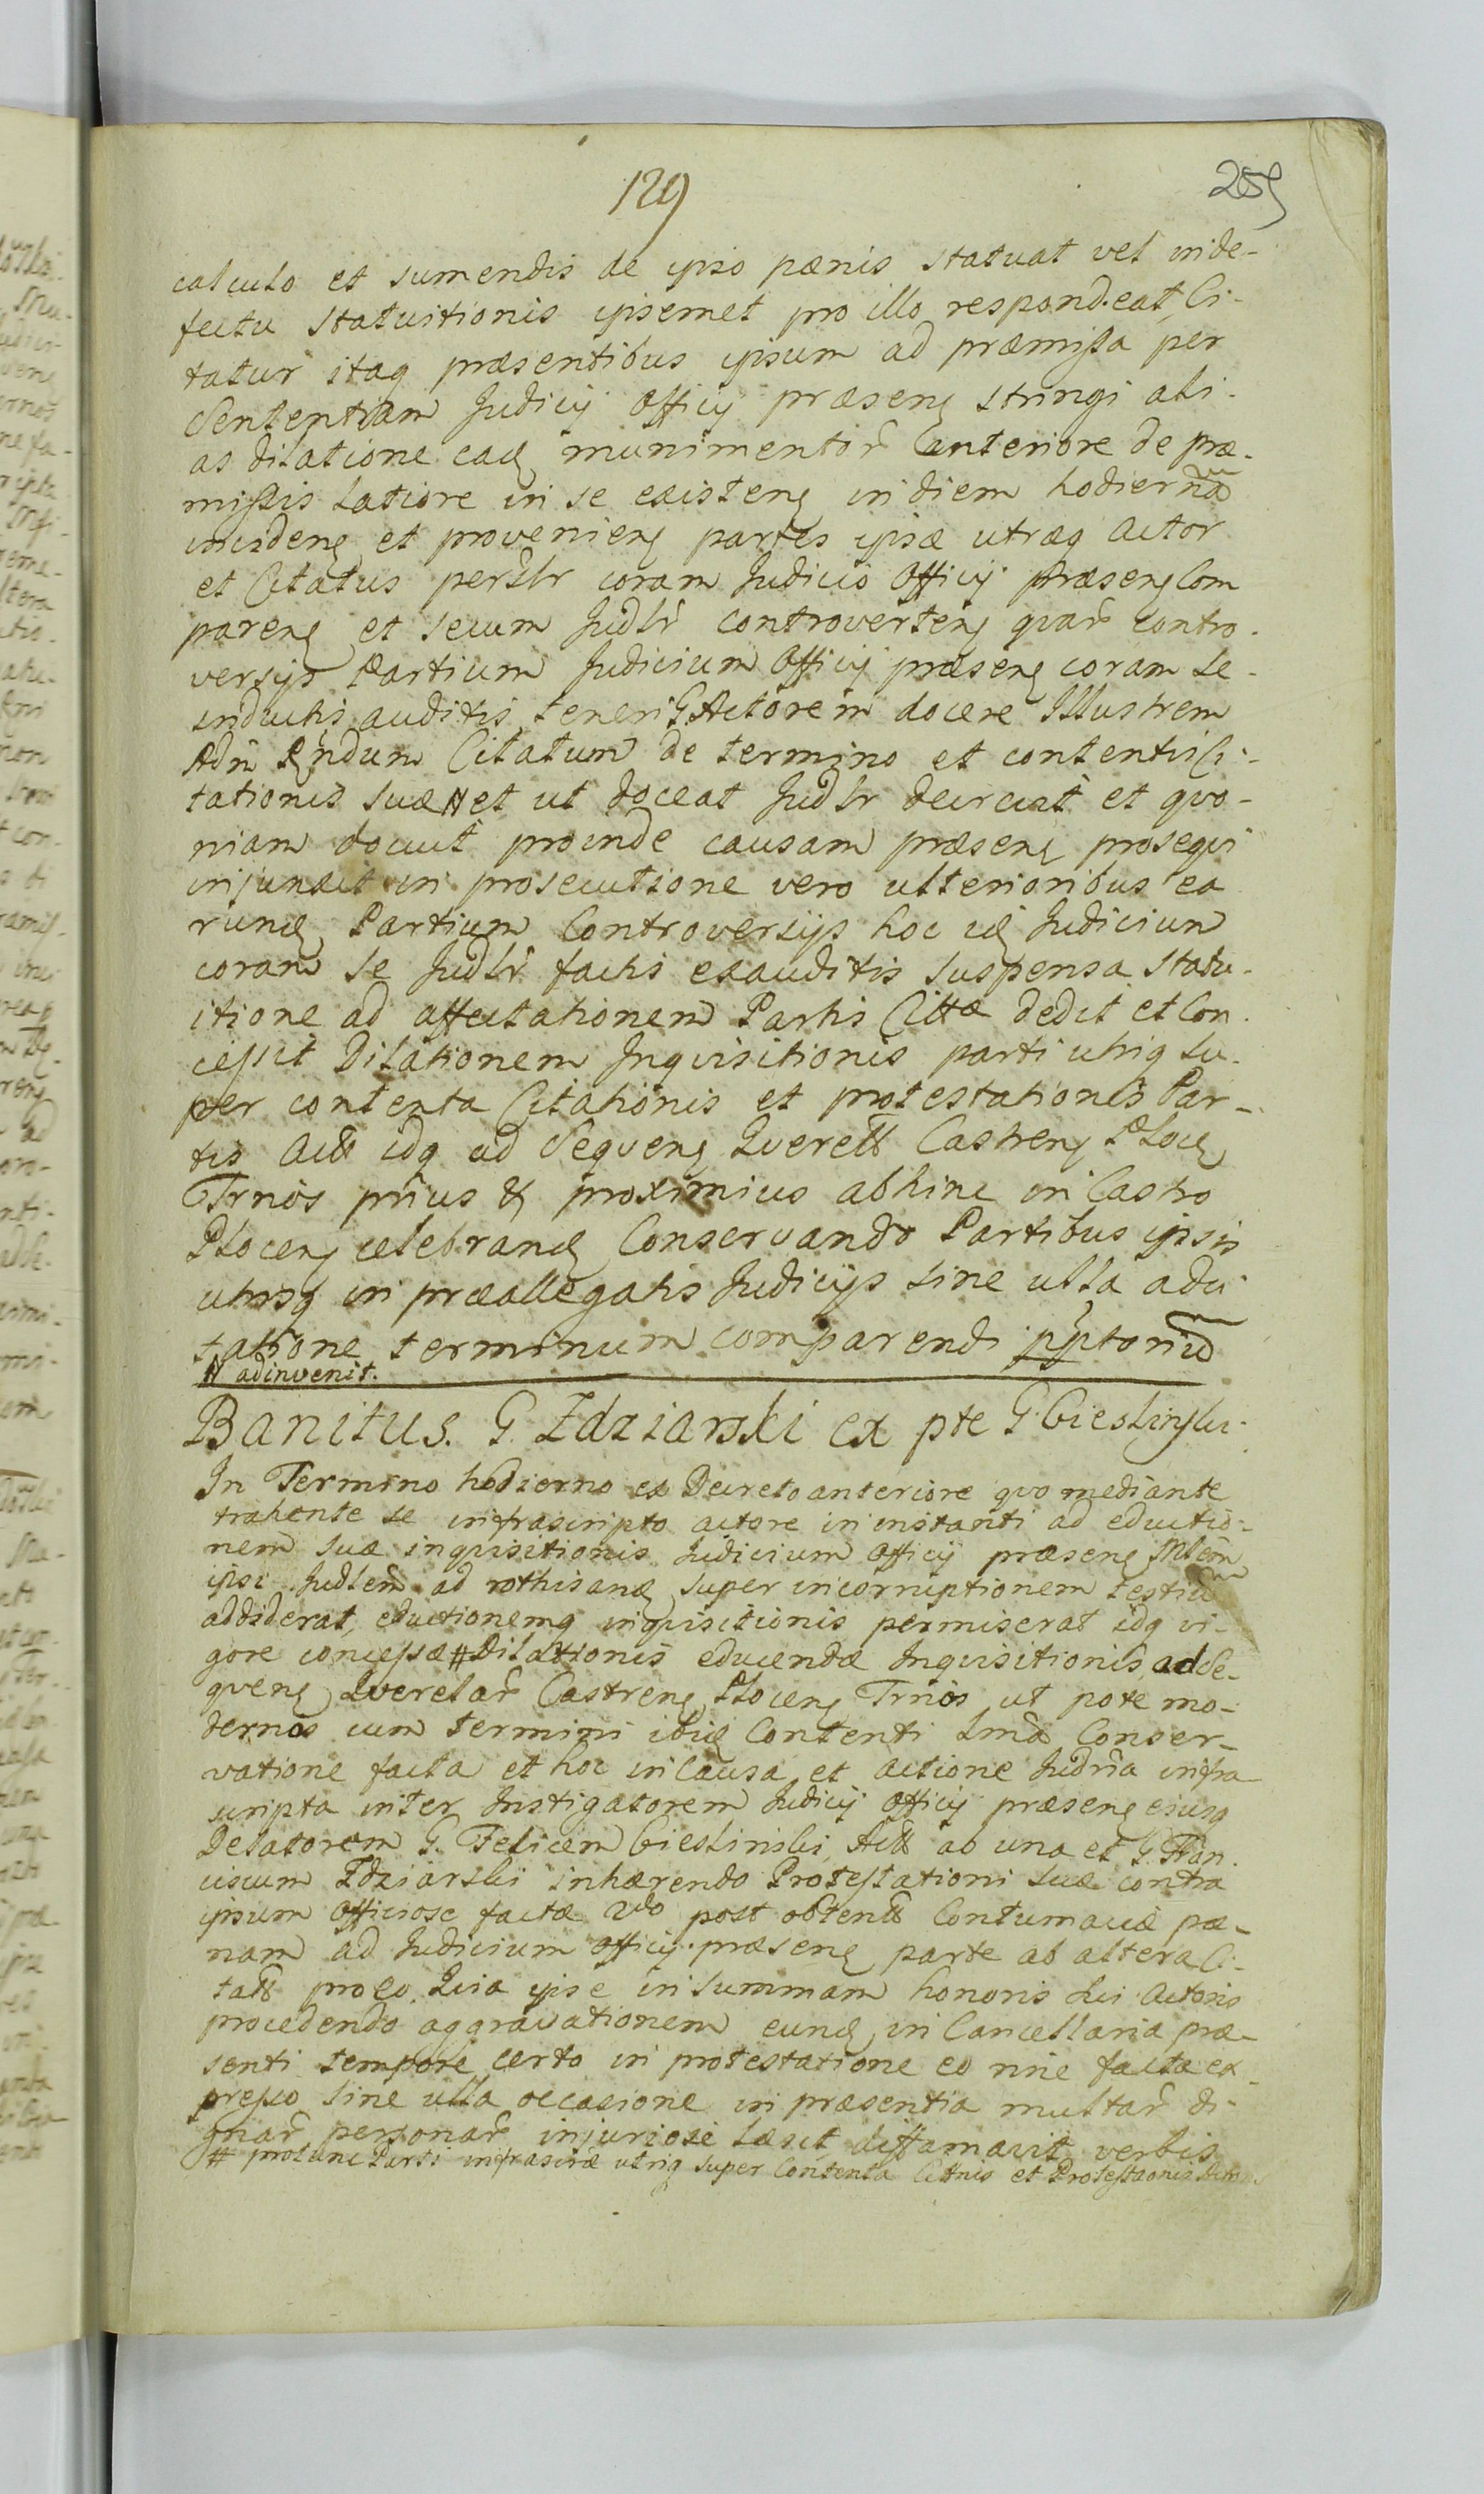 129
259
calculo et sumendis de ipso pœnis statuat vel in de-
fectu statuitionis ipsemet pro illo respondeat Ci-
tatur itaq præsentibus ipsum ad præmissa per
Sententiam Judicij Officij præseng stringi ali-
as dilatione eadg munimentor anteriore de præ-
missis latiore in se existeng in diem hodiernã
incideng et provenieng partes ipsæ utræq Actor
et Citatus persltr coram Judicio Officij Præseng Com
pareng et secum Judltr controverteng quar contro-
versijs Partium Judicium Officij præseng coram se
inductis auditis teneri G. Actorem docere Illustrem
Adm Rndum Citatum de termino et contentis Ci-
tationis suæ # et ut doceat Judltr decrevit et quo-
niam docuit proinde causam præseng prosequi
injunxit in prosecutione vero ulterioribus ea
rundg Partium Controversijs hoc idg Judicium
coram se Judltr factis exauditis suspensa statu-
itione ad affectationem Partis Cittæ dedit et Con-
cessit Dilationem Inquisitionis parti utriq su-
per contenta Citationis et protestationis Par-
tis Act idq ad Sequeng Querell Castreng Ploceg
Trnos prius & proximius abhinc in Castro
Ploceng celebrandg Conservando Partibus ipsis
utrisq in præallegatis Judicijs sine ulla adci
tatione terminum comparendi pptoriũ
# adinvenit.
Banitus. G. Zdziarski ex pte G. Cieslinski.
In Termino hodierno ex Decreto anteriore quo mediante
trahente se infrascripto actore in instanti ad eductio-
nem suæ inquisitionis Judicium Officij præseng Mlem
ipsi Judlem ad rothisandg super incorruptionem testiũ
addiderat, eductionemq inquisitionis permiserat idq vi-
gore concessæ # Dilationis educendæ Inquisitionis, ad Se-
queng Querelar Castreng Ploceng Trnos ut pote mo-
dernos cum termini ibidg Contenti lmã Conser-
vatione facta et hoc in Causa et actione Judria infra
scripta inter Instigatorem Judicij Officij præseng ejusq
Delatorem G. Felicem Cieslinski Act ab una et G. Fran-
ciscum Zdziarski inhærendo Protestationi suæ contra
ipsum Officiose factæ 2do post obtent Contumaciæ pæ-
nam ad Judicium Officij præseng parte ab altera Ci-
tatt pro eo. Quia ipse in summam honoris sui Actoris
procedendo aggravationem eundg in Cancellaria præ-
senti tempore certo in protestatione eo nne facta ex-
presso sine ulla occasione in præsentia multar di-
gnar personar injuriose læsit diffamavit verbis
# pro tunc Parti infrascrtæ utriq super Contenta Cittnis et Protestaonis